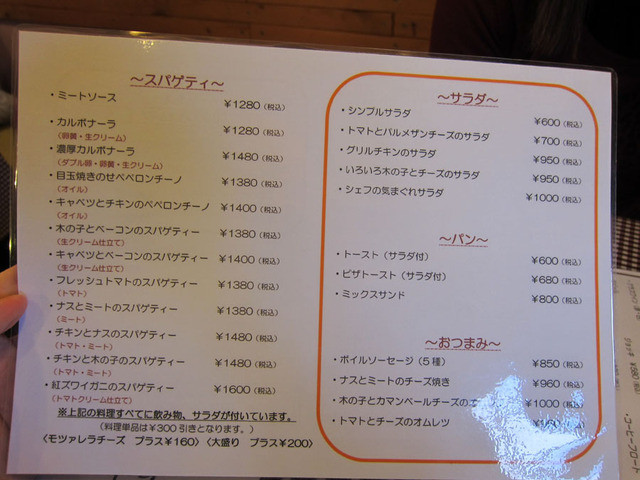 ～スパゲティ～
・ミートソース ¥1280（税込）
・カルボナーラ ¥1280（税込）
（卵黄・生クリーム）
・濃厚カルボナーラ ¥1480（税込）
（ダブル卵・卵黄・生クリーム）
・目玉焼きのせペペロンチーノ ¥1380（税込）
（オイル）
・キャベツとチキンのペペロンチーノ ¥1400（税込）
（オイル）
・木の子とベーコンのスパゲティー ¥1380（税込）
（生クリーム仕立て）
・キャベツとベーコンのスパゲティー ¥1400（税込）
（生クリーム仕立て）
・フレッシュトマトのスパゲティー ¥1380（税込）
（トマト）
・ナスとミートのスパゲティー ¥1380（税込）
（ミート）
・チキンとナスのスパゲティー ¥1480（税込）
（トマト・ミート）
・チキンと木の子のスパゲティー ¥1480（税込）
（トマト・ミート）
・紅ズワイガニのスパゲティー ¥1600（税込）
（トマトクリーム仕立て）
※上記の料理すべてに飲み物、サラダが付いています。
（料理単品は¥300引きとなります。）
〈モツァレラチーズ プラス¥160〉〈大盛り プラス¥200〉
～サラダ～
・シンプルサラダ ¥600（税込）
・トマトとパルメザンチーズのサラダ ¥700（税込）
・グリルチキンのサラダ ¥950（税込）
・いろいろ木の子とチーズのサラダ ¥950（税込）
・シェフの気まぐれサラダ ¥1000（税込）
～パン～
・トースト（サラダ付） ¥600（税込）
・ピザトースト（サラダ付） ¥680（税込）
・ミックスサンド ¥800（税込）
～おつまみ～
・ボイルソーセージ（5種） ¥850（税込）
・ナスとミートのチーズ焼き ¥960（税込）
・木の子とカマンベールチーズの ¥1000（税込）
・トマトとチーズのオムレツ （税込）
・コーヒーフロート